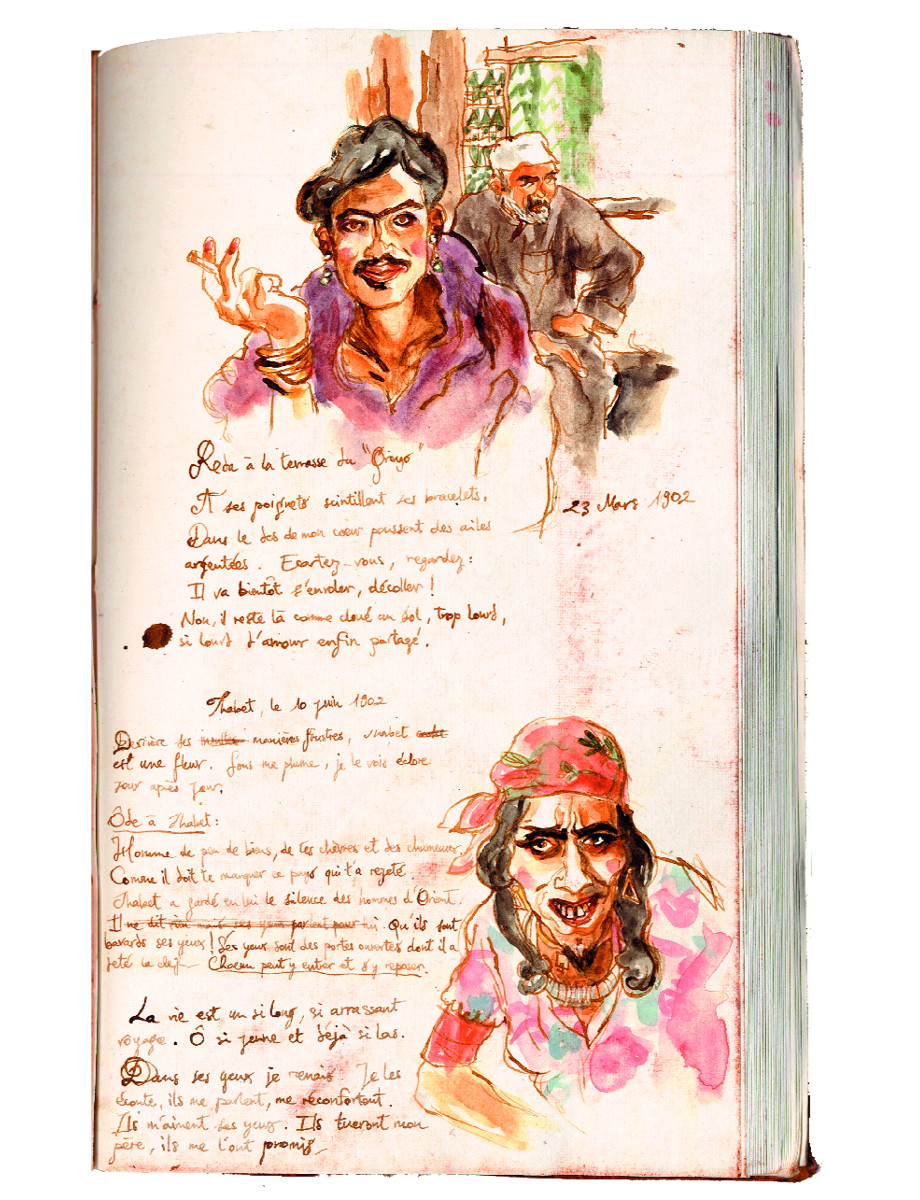 Reda à la terrasse du "Grayo"
23 Mars 1902
A ses poignets scintillent ses bracelets.
Dans le dos de mon cœur poussent des ailes
argentées. Ecartez-vous, regardez :
Il va bientôt s'envoler, décoller !
Non, il reste là comme cloué au sol, trop lourd,
si lourd d'amour enfin partagé.
Thabet, le 10 juin 1902
Derrière ses manières frustres, Thabet
est une fleur. Sous ma plume, je le vois éclore
jour après jour.
Ôde à Thabet :
Homme de peu de biens, de tes chèvres et des chameaux,
Comme il doit te manquer ce pays qui t'a rejeté.
Thabet a gardé en lui le silence des hommes d'Orient.
Il ne dit rien mais ses yeux parlent pour lui. Qu'ils sont
bavards ses yeux ! Ses yeux sont des portes ouvertes dont il a
jeté la clef - Chacun peut y entrer et s'y reposer.
La vie est un si long, si arrassant
voyage. Ô si jeune et déjà si las.
Dans ses yeux je renais Je les
écoute, ils me parlent, me réconfortent.
Ils m'aiment ses yeux. Ils tueront mon
père, ils me l'ont promis